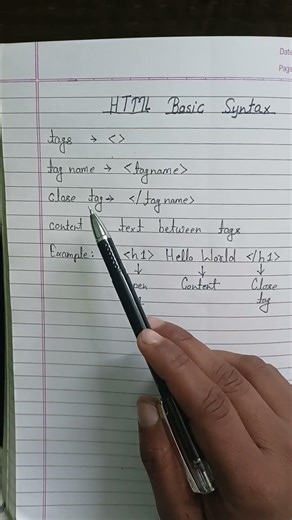 Date
Page
HTML Basic Syntax
tags → < >
tag name → <tagname>
close tag → </tag name>
content text between tags
Example: <h1> Hello World </h1>
↓ ↓ ↓
pen Content Close
tag